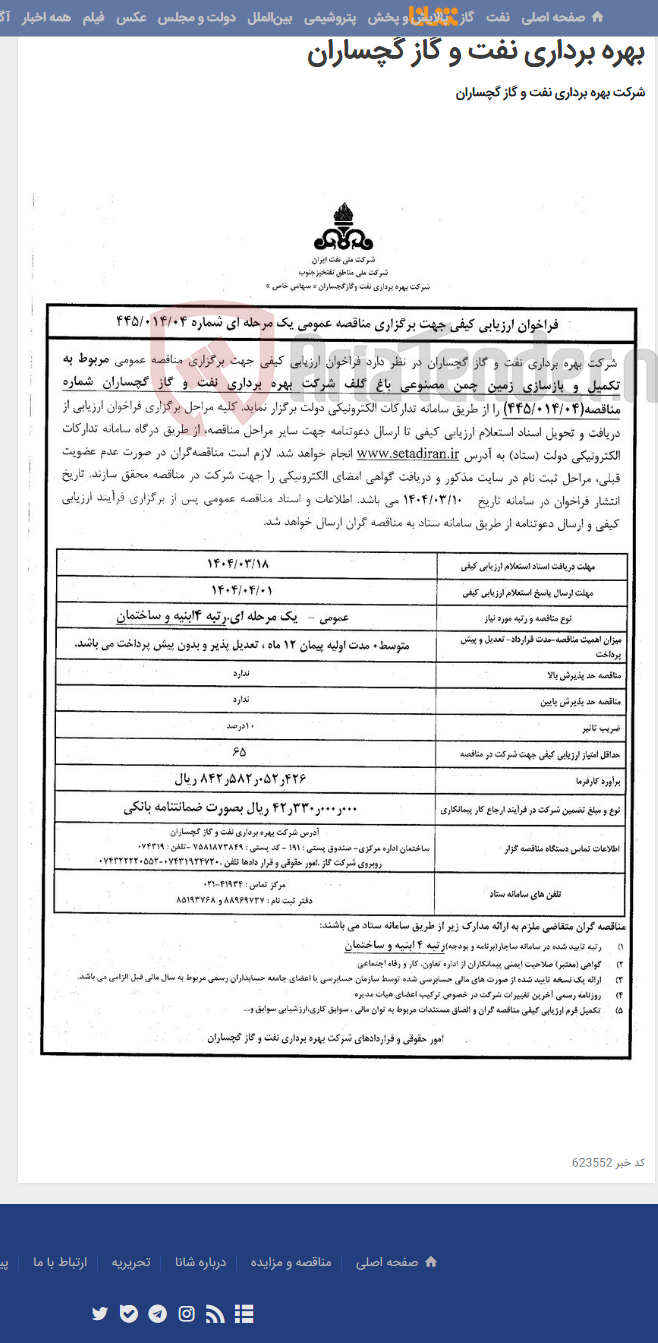 صفحه اصلی نفت گاز پالایش و پخش پتروشیمی بین‌الملل دولت و مجلس عکس فیلم همه اخبار
شانا
بهره برداری نفت و گاز گچساران
شرکت بهره برداری نفت و گاز گچساران
شرکت ملی نفت ایران
شرکت ملی مناطق نفتخیز جنوب
شرکت بهره برداری نفت وگازگچساران « سهامی خاص »
فراخوان ارزیابی کیفی جهت برگزاری مناقصه عمومی یک مرحله ای شماره ۴۴۵/۰۱۴/۰۴
AriaTender
شرکت بهره برداری نفت و گاز گچساران در نظر دارد فراخوان ارزیابی کیفی جهت برگزاری مناقصه عمومی مربوط به
تکمیل و بازسازی زمین چمن مصنوعی باغ گلف شرکت بهره برداری نفت و گاز گچساران شماره
مناقصه(۴۴۵/۰۱۴/۰۴) را از طریق سامانه تدارکات الکترونیکی دولت برگزار نماید. کلیه مراحل برگزاری فراخوان ارزیابی از
دریافت و تحویل اسناد استعلام ارزیابی کیفی تا ارسال دعوتنامه جهت سایر مراحل مناقصه، از طریق درگاه سامانه تدارکات
الکترونیکی دولت (ستاد) به آدرس www.setadiran.ir انجام خواهد شد. لازم است مناقصه‌گران در صورت عدم عضویت
قبلی، مراحل ثبت نام در سایت مذکور و دریافت گواهی امضای الکترونیکی را جهت شرکت در مناقصه محقق سازند. تاریخ
انتشار فراخوان در سامانه تاریخ ۱۴۰۴/۰۳/۱۰ می باشد. اطلاعات و اسناد مناقصه عمومی پس از برگزاری فرآیند ارزیابی
کیفی و ارسال دعوتنامه از طریق سامانه ستاد به مناقصه گران ارسال خواهد شد.
مهلت دریافت اسناد استعلام ارزیابی کیفی ۱۴۰۴/۰۳/۱۸
مهلت ارسال پاسخ استعلام ارزیابی کیفی ۱۴۰۴/۰۴/۰۱
نوع مناقصه و رتبه مورد نیاز عمومی – یک مرحله ای.رتبه ۴ابنیه و ساختمان
میزان اهمیت مناقصه-مدت قرارداد- تعدیل و پیش
پرداخت
متوسط۰ مدت اولیه پیمان ۱۲ ماه ، تعدیل پذیر و بدون پیش پرداخت می باشد.
مناقصه حد پذیرش بالا ندارد
مناقصه حد پذیرش پایین ندارد
ضریب تاثیر ۱۰درصد
حداقل امتیاز ارزیابی کیفی جهت شرکت در مناقصه ۶۵
برآورد کارفرما ۸۴۲٫۵۸۲٫۰۵۲٫۴۲۶ ریال
نوع و مبلغ تضمین شرکت در فرآیند ارجاع کار پیمانکاری ۴۲٫۳۳۰٫۰۰۰٫۰۰۰ ریال بصورت ضمانتنامه بانکی
اطلاعات تماس دستگاه مناقصه گزار
آدرس شرکت بهره برداری نفت و گاز گچساران
ساختمان اداره مرکزی - صندوق پستی : ۱۹۱ - کد پستی : ۷۵۸۱۸۷۳۸۴۹ -تلفن : ۰۷۴۳۱۹
روبروی شرکت گاز .امور حقوقی و قرار دادها تلفن .۰۷۴۳۱۹۲۴۷۲۰-۰۷۴۳۲۲۲۰۵۵۲
تلفن های سامانه ستاد
مرکز تماس : ۴۱۹۳۴-۰۲۱
دفتر ثبت نام : ۸۸۹۶۹۷۳۷ و ۸۵۱۹۳۷۶۸
مناقصه گران متقاضی ملزم به ارائه مدارک زیر از طریق سامانه ستاد می باشند:
۱) رتبه تایید شده در سامانه ساجار(برنامه و بودجه)رتبه ۴ ابنیه و ساختمان
۲) گواهی (معتبر) صلاحیت ایمنی پیمانکاران از اداره تعاون، کار و رفاه اجتماعی
۳) ارائه یک نسخه تایید شده از صورت های مالی حسابرسی شده توسط سازمان حسابرسی یا اعضای جامعه حسابداران رسمی مربوط به سال مالی قبل الزامی می باشد.
۴) روزنامه رسمی آخرین تغییرات شرکت در خصوص ترکیب اعضای هیات مدیره
۵) تکمیل فرم ارزیابی کیفی مناقصه گران و الصاق مستندات مربوط به توان مالی ، سوابق کاری،ارزشیابی سوابق و...
امور حقوقی و قراردادهای شرکت بهره برداری نفت و گاز گچساران
کد خبر 623552
صفحه اصلی مناقصه و مزایده درباره شانا تحریریه ارتباط با ما